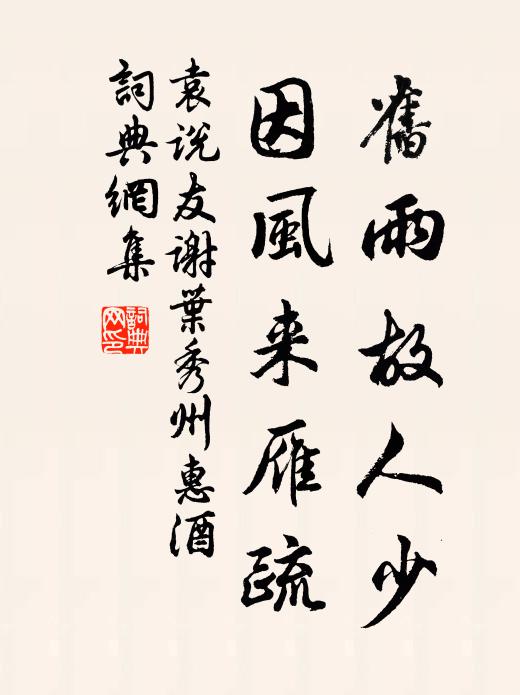 舊雨故人少
因風来雁疏
袁说友谢葉秀州惠酒
詞典網集
詞典
网印